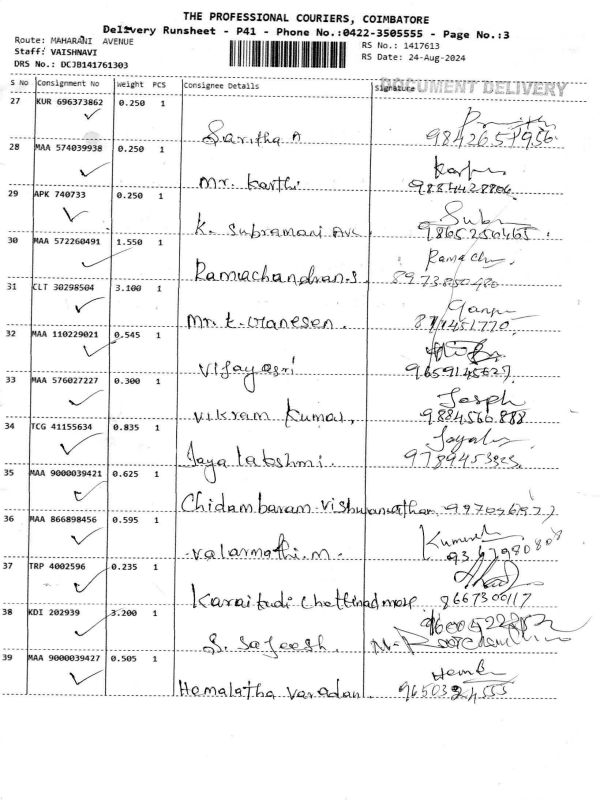 THE PROFESSIONAL COURIERS, COIMBATORE
Delivery Runsheet - P41 - Phone No.:0422-3505555 - Page No.:3
Route: MAHARANI AVENUE
RS No.: 1417613
Staff: VAISHNAVI
RS Date: 24-Aug-2024
DRS No.: DCJB141761303
DOCUMENT DELIVERY
S No Consignment No Weight PCS Consignee Details Signature
27 KUR 696373862 0.250 1
Saritha A 9842651956
28 MAA 574039938 0.250 1
Mr. Karthi 9884428806
29 APK 740733 0.250 1
K. Subramani Ave. 9865250465
30 MAA 572260491 1.550 1
Ramachandran.S
31 CLT 30298504 3.100 1
Mr. K. Ganesen.
32 MAA 110229021 0.545 1
Vijayasri 9659145627
33 MAA 576027227 0.300 1
Joseph
Vikram Kumar, 9884560888
34 TCG 41155634 0.835 1
Jaya lakshmi. 9789453323
35 MAA 9000039421 0.625 1
Chidambaram Vishwanathan
36 MAA 866898456 0.595 1
Valarmathi.M.
37 TRP 4002596 0.235 1
Karaikudi Chettinad 8667300117
38 KDI 202939 3.200 1
S. Sajeesh
39 MAA 9000039427 0.505 1
Hemalatha Varadan.